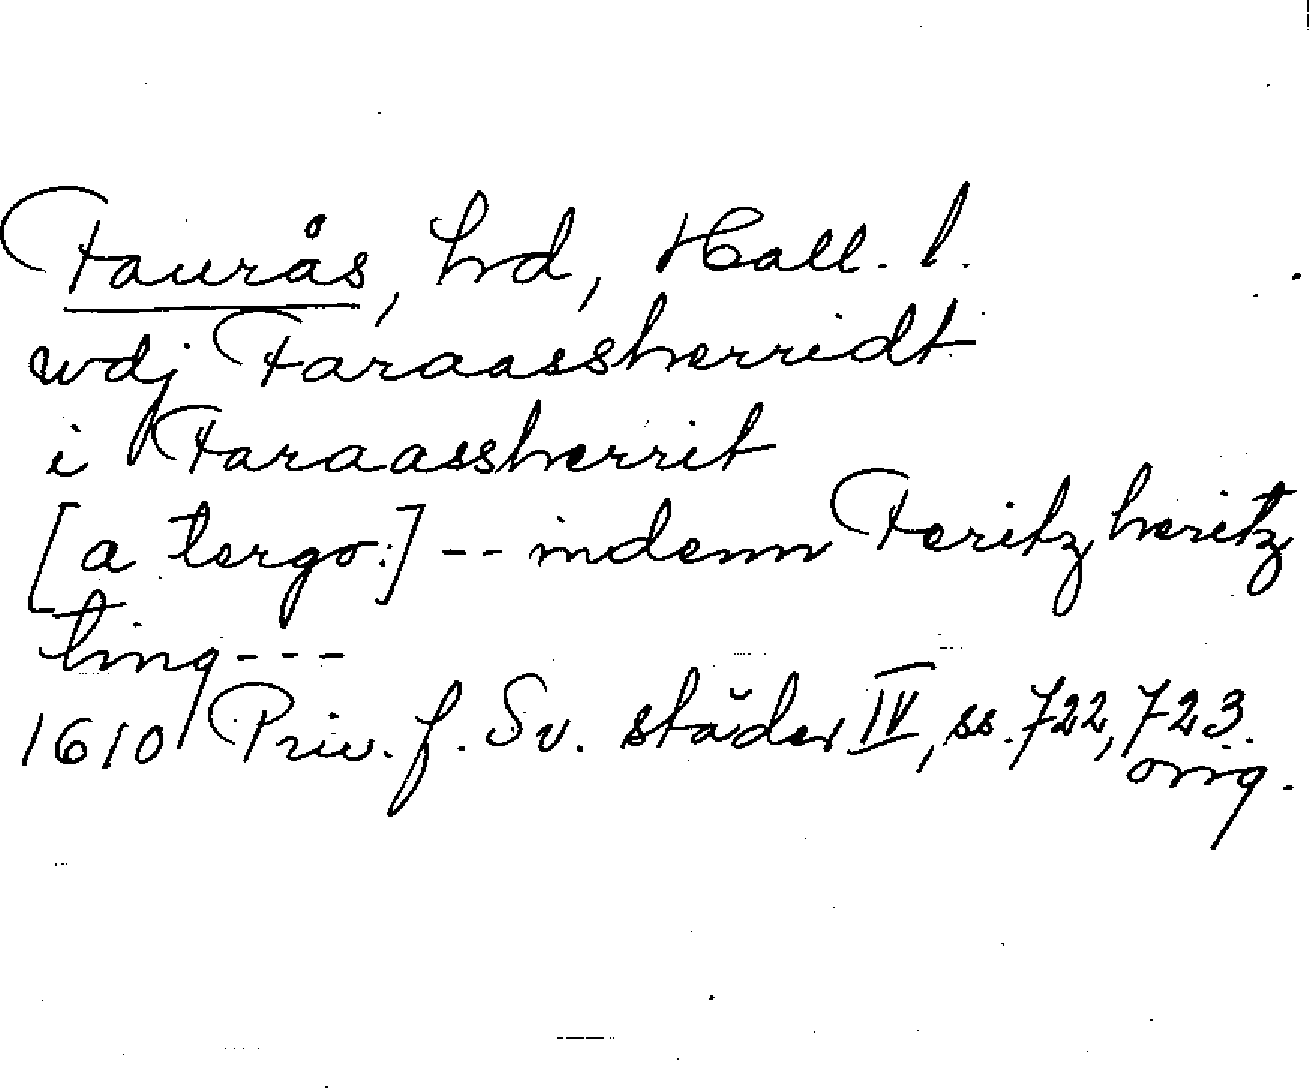 Faurås, hrd, Hall. l.
wdj Faraassherridt
i Faraassherrit
[a tergo:] -- indenn Feritzheritz
ting---
1610 Priv. f. Sv. städer IV, ss. 722, 723.
orig.